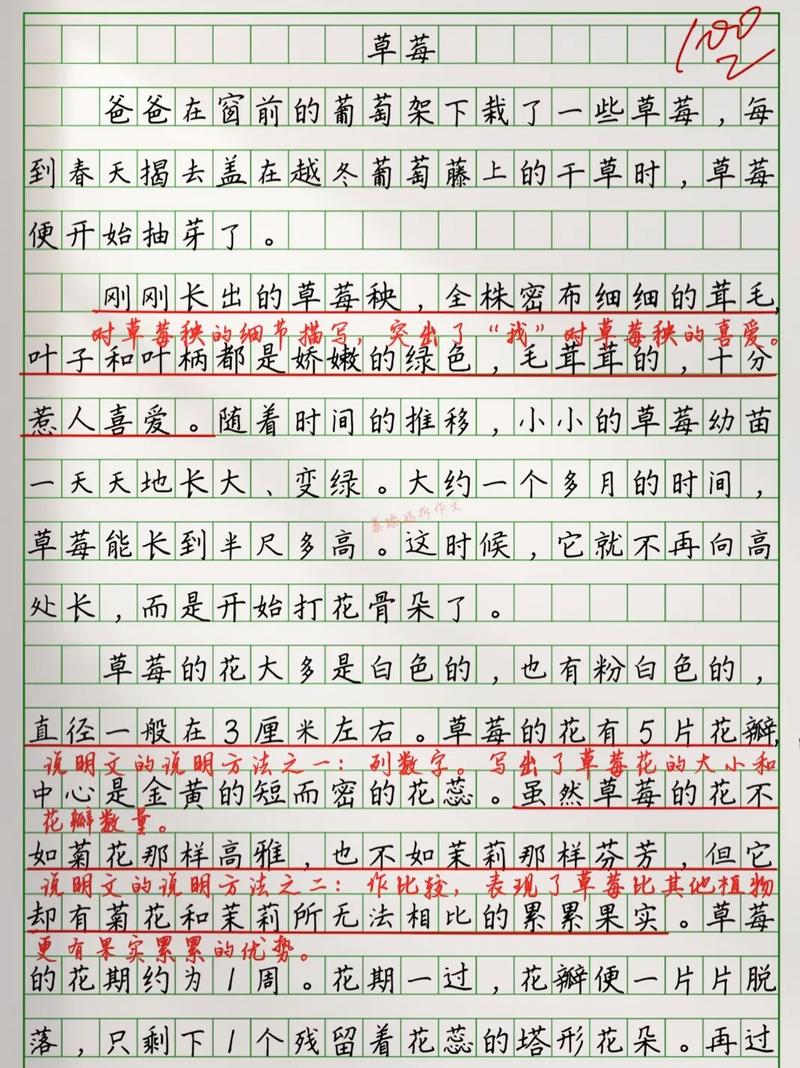 草莓
100
爸爸在窗前的葡萄架下栽了一些草莓，每
到春天揭去盖在越冬葡萄藤上的干草时，草莓
便开始抽芽了。
刚刚长出的草莓秧，全株密布细细的茸毛，
对草莓秧的细节描写，突出了“我”对草莓秧的喜爱。
叶子和叶柄都是娇嫩的绿色，毛茸茸的，十分
惹人喜爱。随着时间的推移，小小的草莓幼苗
一天天地长大、变绿。大约一个多月的时间，
草莓能长到半尺多高。这时候，它就不再向高
处长，而是开始打花骨朵了。
草莓的花大多是白色的，也有粉白色的，
直径一般在3厘米左右。草莓的花有5片花瓣，
说明文的说明方法之一：列数字。写出了草莓花的大小和
中心是金黄的短而密的花蕊。虽然草莓的花不
花瓣数量。
如菊花那样高雅，也不如茉莉那样芬芳，但它
说明文的说明方法之二：作比较，表现了草莓比其他植物
却有菊花和茉莉所无法相比的累累果实。草莓
更有果实累累的优势。
的花期约为1周。花期一过，花瓣便一片片脱
落，只剩下1个残留着花蕊的塔形花朵。再过